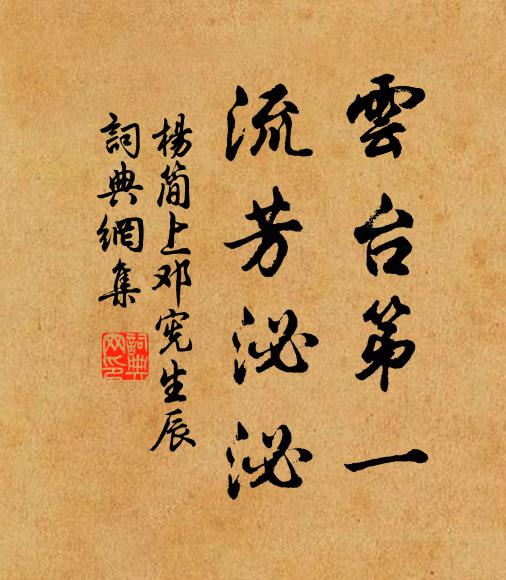 雲台第一
流芳泌泌
楊简上邓宪生辰
詞典網集
詞典
网印